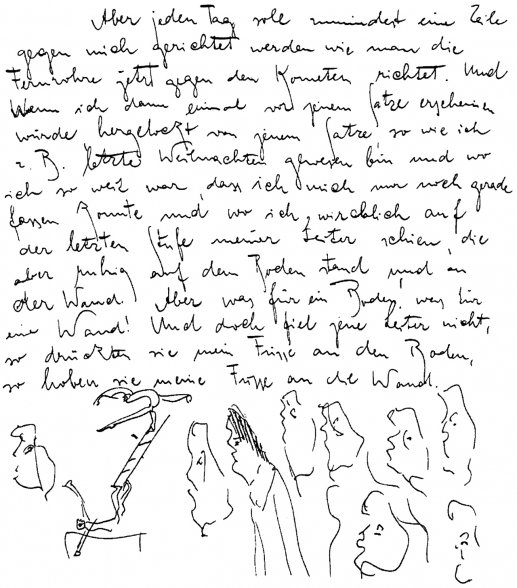 Aber jeden Tag soll mindest eine Zeile
gegen mich gerichtet werden wie man die
Fernrohre jetzt gegen den Kometen richtet. Und
Wenn ich dann einmal vor jenem Satze erscheinen
würde hergelockt von jenem Satze, so wie ich
z. B. letzte Weihnachten gewesen bin und wo
ich so weit war, dass ich mich nur noch gerade
fassen konnte und wo ich wirklich auf
der letzten Stufe meiner Leiter schien, die
aber ruhig auf dem Boden stand und an
der Wand. Aber was für ein Boden, was für
eine Wand! Und doch fiel jene Leiter nicht,
so drückten sie meine Füsse an den Boden,
so hoben sie meine Füsse an die Wand.